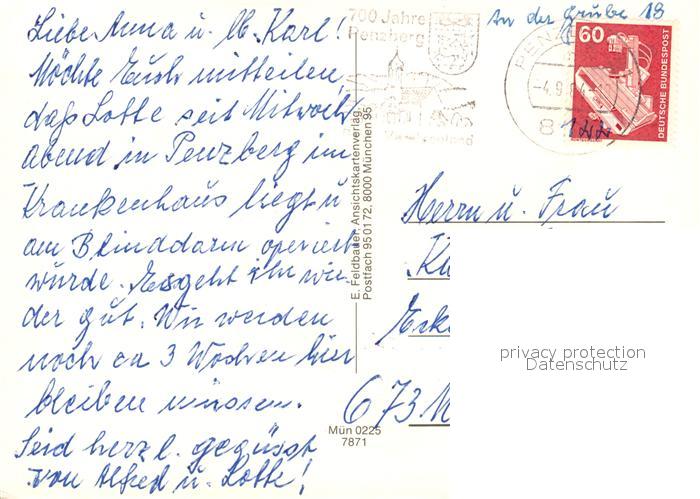 Liebe Anna u. lb. Karl!
Möchte Euch mitteilen,
daß Lotte seit Mittwoch
abend in Penzberg im
Krankenhaus liegt u.
am Blinddarm operiert
wurde. Es geht ihr wie-
der gut. Wir werden
noch ca 3 Wochen hier
bleiben müssen.
Seid herzl. gegüsst
von Alfred u. Lotte!
E. Feldbauer, Ansichtskartenverlag,
Postfach 950172, 8000 München 95
Mün 0225
7871
700 Jahre
Penzberg
An der Grube 18
PENZ
-4.9.84
81
60
DEUTSCHE BUNDESPOST
Herrn u. Frau
673
privacy protection
Datenschutz